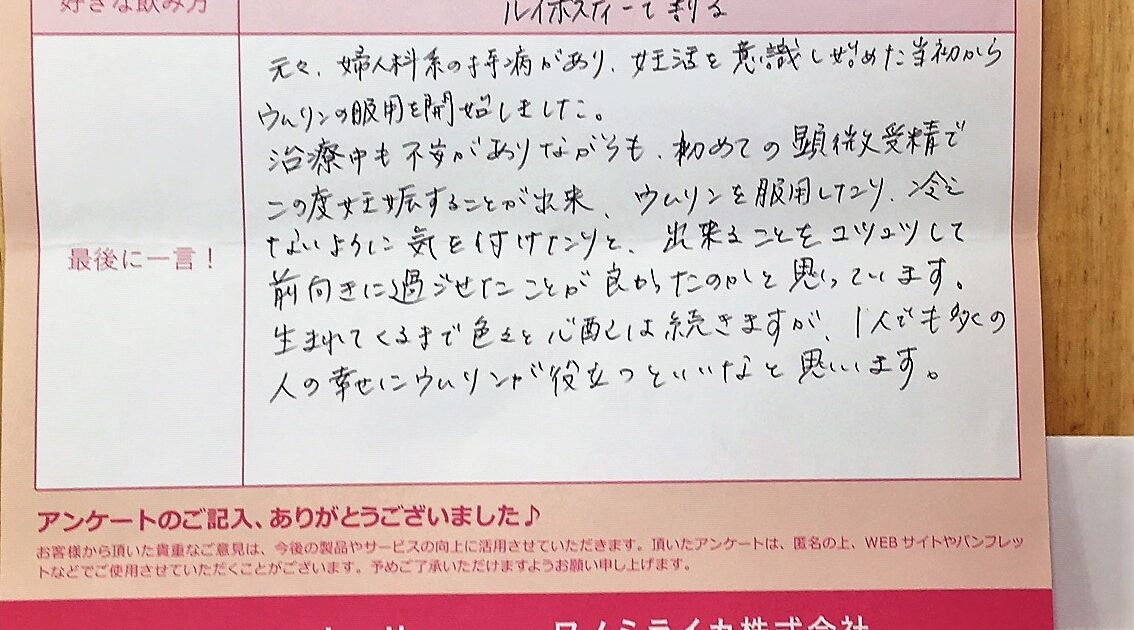 好きな飲み方
ルイボスティーで割る
元々、婦人科系の持病があり、妊活を意識し始めた当初から
ウムリンの服用を開始しました。
治療中も不安がありながらも、初めての顕微受精で
この度妊娠することが出来、ウムリンを服用したり、冷え
ないように気を付けたりと、出来ることをコツコツして
前向きに過ごせたことが良かったのかと思っています。
生まれてくるまで色々と心配は続きますが、1人でも多くの
人の幸せにウムリンが役立つといいなと思います。
最後に一言！
アンケートのご記入、ありがとうございました♪
お客様から頂いた貴重なご意見は、今後の製品やサービスの向上に活用させていただきます。頂いたアンケートは、匿名の上、WEBサイトやパンフレッ
トなどでご使用させていただくことがございます。予めご了承いただけますようお願い申し上げます。
株式会社